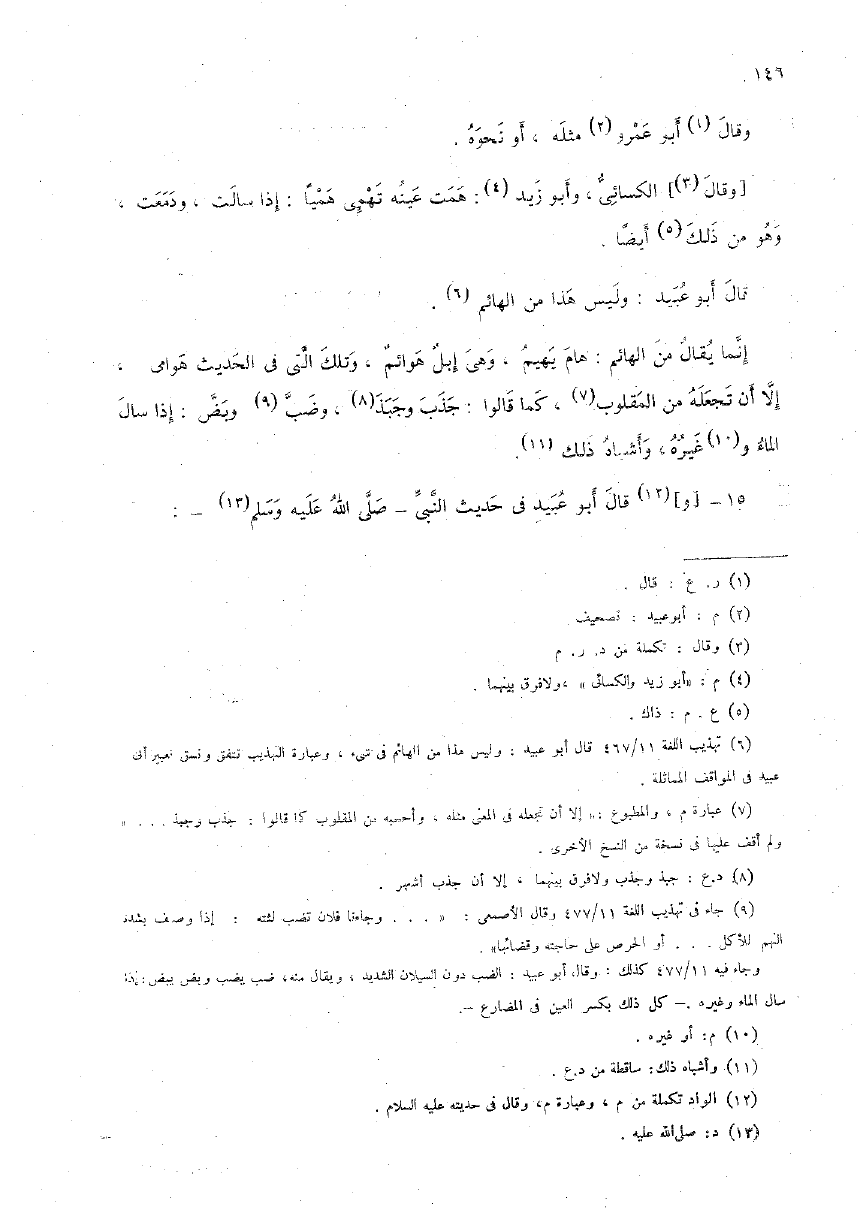 ١٤٦
وقالَ (١) أَبو عَمْرو (٢) مثلَه ، أَو نَحوَهُ .
[وقالَ (٣)] الكسائىُّ ، وأَبو زَيد (٤) : هَمَت عَينُه تَهْمِى هَمْيًا : إِذا سالَت ، ودَمَعَت ،
وَهُو من ذَلكَ (٥) أَيضًا .
قالَ أَبو عُبَيد : ولَيس هَذا من الهائم (٦) .
إِنَّما يُقالُ منَ الهائم : هامَ يَهيمُ ، وَهىَ إِبلٌ هَوائمٌ ، وَتلكَ الَّتى فى الحَديث هَوامى ،
إِلَّا أَن تَجعَلَهُ من المَقلوب (٧) ، كَما قَالوا : جَذَبَ وجَبَذَ (٨) ، وضَبَّ (٩) وبَضَّ : إِذا سالَ
الماءُ و (١٠) غَيرُهُ ، وَأَشباهُ ذلك (١١).
١٥ – [و] (١٢) قالَ أَبو عُبَيد فى حَديث النَّبىِّ – صَلَّى اللهُ عَلَيه وَسَلم (١٣) – :
(١) ر. ع : قال .
(٢) م : أبو عبيد : تصحيف
(٣) وقال : تكملة من د. ر. م
(٤) م : «أبو زيد والكسائى » ،ولافرق بينهما .
(٥) ع . م : ذاك .
(٦) تهذيب اللغة ٤٦٧/١١ قال أبو عبيد : وليس هذا من الهائم فى شىء ، وعبارة التهذيب تتفق ونسق تعبير أبى
عبيد فى المواقف المماثلة .
(٧) عبارة م ، والمطبوع :« إلا أن تجعله فى المعنى مثله ، وأحسبه من المقلوب كما قالوا : جذب وجبذ . . . »
ولم أقف عليها فى نسخة من النسخ الأخرى .
(٨) د.ع : جبذ وجذب ولافرق بينهما ، إلا أن جذب أشهر .
(٩) جاء فى تهذيب اللغة ٤٧٧/١١ وقال الأصمعى : « . . . وجاءنا فلان تضب لثته : إذا وصف بشدة
النهم للأكل . . . أو الحرص على حاجته وقضائها».
وجاء فيه ٤٧٧/١١ كذلك : وقال أبو عبيد : الضب دون السيلان الشديد ، ويقال منه، ضب يضب وبض يبض : إذا
سال الماء وغيره .– كل ذلك بكسر العين فى المضارع –.
(١٠) م: أو غيره .
(١١) وأشباه ذلك: ساقطة من د.ع .
(١٢) الواد تكملة من م ، وعبارة م، وقال فى حديثه عليه السلام .
(١٣) د: صلى الله عليه .